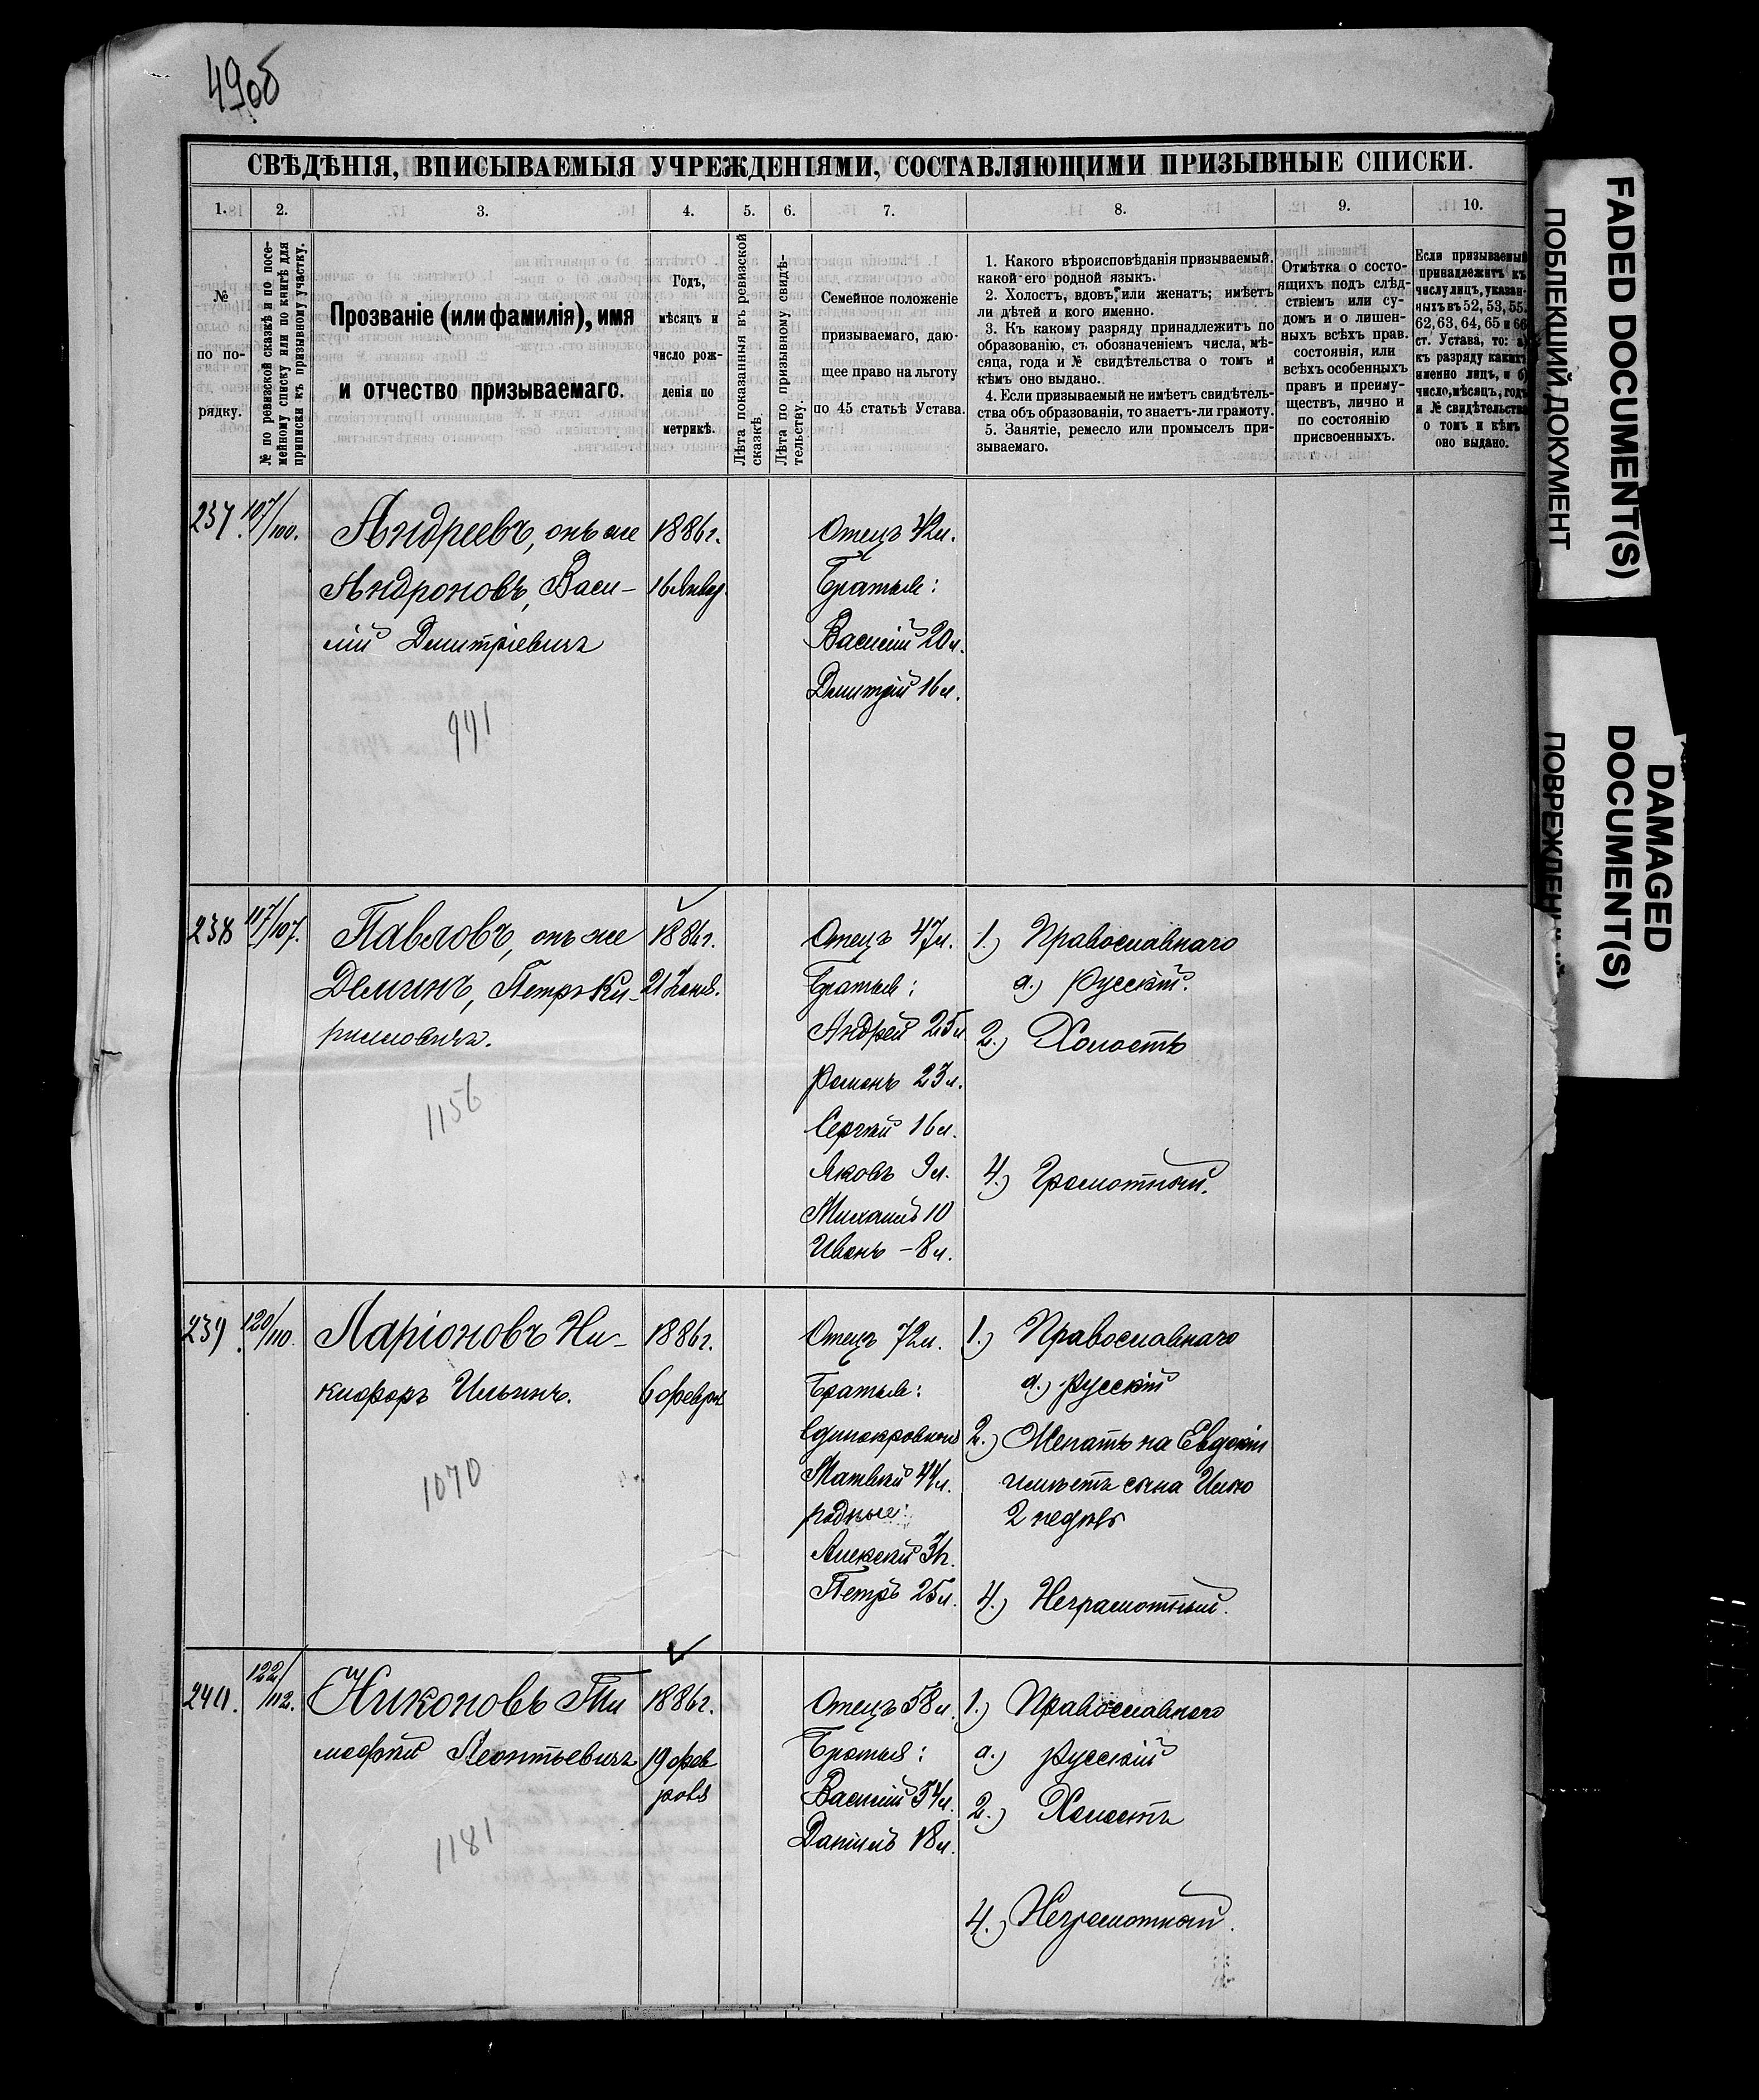 49об
СВѢДѢНІЯ, ВПИСЫВАЕМЫЯ УЧРЕЖДЕНІЯМИ, СОСТАВЛЯЮЩИМИ ПРИЗЫВНЫЕ СПИСКИ.
1. 2. 3. 4. 5. 6. 7. 8. 9. 10.
№
по по-
рядку.
№ по ревизской сказкѣ и по посе-
мейному списку или по книгѣ для
приписки къ призывному участку.
Прозваніе (или фамилія), имя
и отчество призываемаго.
Годъ,
мѣсяцъ и
число рож-
денія по
метрикѣ.
Лѣта показанныя въ ревизской
сказкѣ.
Лѣта по призывному свидѣ-
тельству.
Семейное положеніе
призываемаго, даю-
щее право на льготу
по 45 статьѣ Устава.
1. Какого вѣроисповѣданія призываемый,
какой его родной языкъ.
2. Холостъ, вдовъ, или женатъ; имѣетъ
ли дѣтей и кого именно.
3. Къ какому разряду принадлежитъ по
образованію, съ обозначеніемъ числа, мѣ-
сяца, года и № свидѣтельства о томъ и
кѣмъ оно выдано.
4. Если призываемый не имѣетъ свидѣтель-
ства объ образованіи, то знаетъ-ли грамоту.
5. Занятіе, ремесло или промыселъ при-
зываемаго.
Отмѣтка о состо-
ящихъ подъ слѣд-
ствіемъ или су-
домъ и о лишен-
ныхъ всѣхъ прав.
состоянія, или
всѣхъ особенныхъ
правъ и преиму-
ществъ, лично и
по состоянію
присвоенныхъ.
Если призываемый
принадлежитъ къ
числу лицъ, указан-
ныхъ въ 52, 53, 55,
62, 63, 64, 65 и 66
ст. Устава, то: а)
къ разряду какихъ
именно лицъ, и б)
число, мѣсяцъ, годъ
и № свидѣтельства
о томъ и кѣмъ
оно выдано.
237.
107/100.
Андреевъ, онъ же
Андроновъ, Васи-
лій Дмитріевичъ
991
1886г.
16 Январ
Отецъ 42л.
Братья:
Василій 20л.
Дмитрій 16л.
238
117/107.
Павловъ, онъ же
Деминъ, Петръ Ки-
рилловичъ.
1156
1886г.
21 Іюня.
Отецъ 47л.
Братья:
Андрей 25л
Романъ 23л.
Сергѣй 16л.
Яковъ 9л.
Михаилъ 10
Иванъ - 8л.
1.) Православнаго
а.) русскій.
2.) Холостъ
4.) Грамотный.
239.
120/110.
Ларіоновъ Ни-
кифоръ Ильинъ.
1070
1886г.
6 феврал
Отецъ 72л.
Братья:
Единокровной
Матвѣй 44л.
родные:
Алексѣй 31г.
Петръ 25л.
1.) Православнаго
а.) русскій
2.) Женатъ на Евдокіи
имѣетъ сына Илью
2 недѣль
4.) Неграмотный.
240.
122/112.
Никоновъ Ти
мофѣй Леонтьевичъ
1181
1886г.
19 фев
раля
Отецъ 58л.
Братья:
Василій 34л.
Даніилъ 18л.
1.) Православнаго
а.) русскій
2.) Холостъ
4.) Неграмотный.
FADED DOCUMENT(S)
ПОБЛЕКШИЙ ДОКУМЕНТ
DAMAGED
DOCUMENT(S)